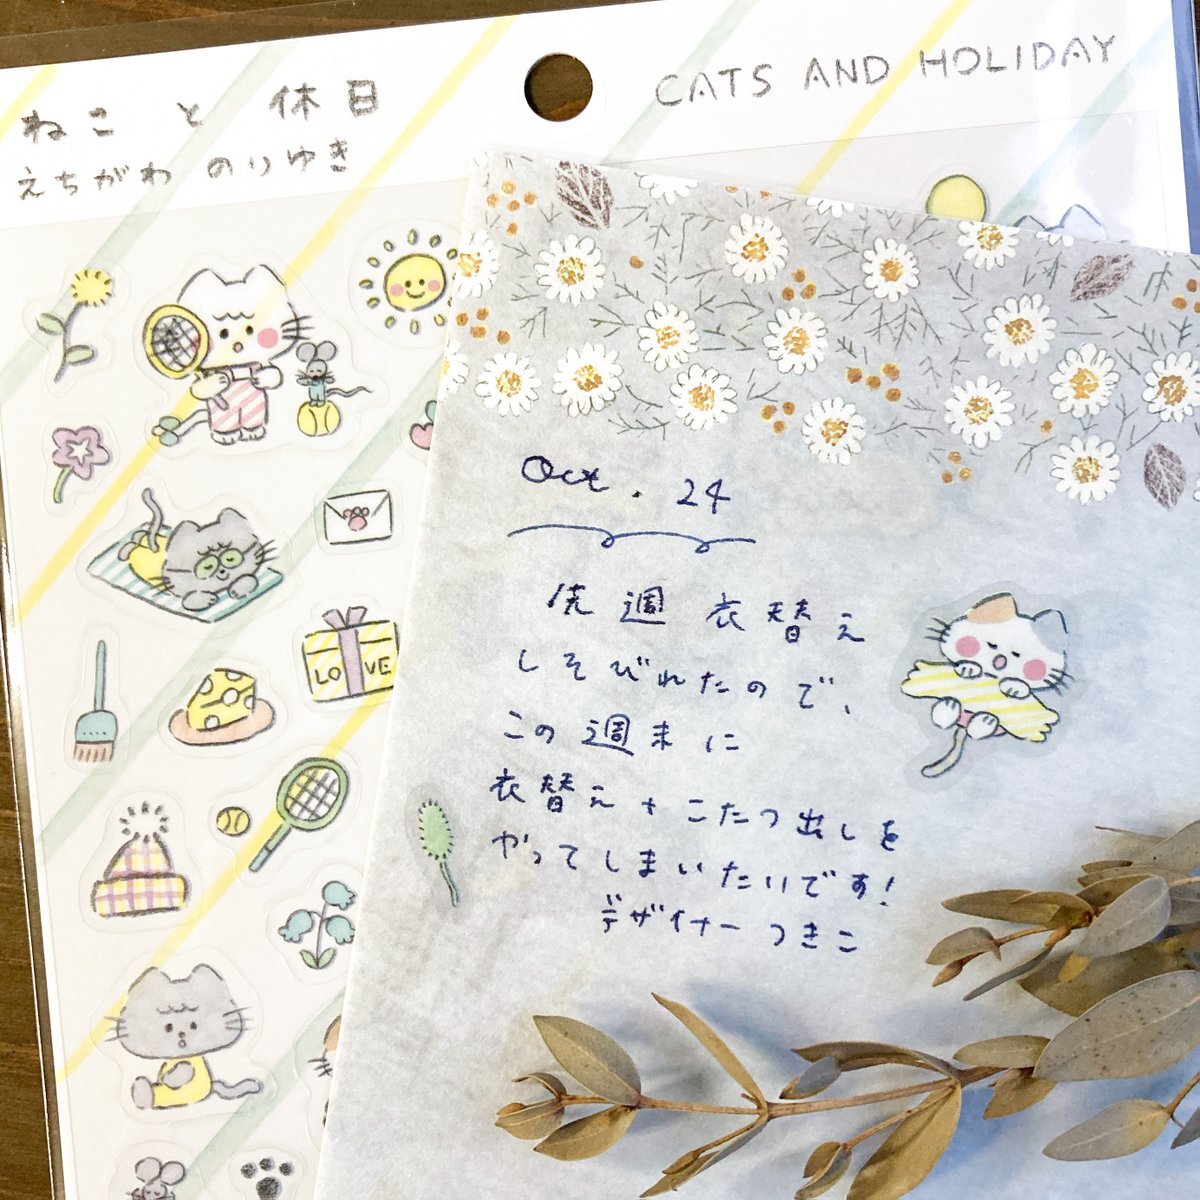 ねこ と 休日
えちがわ のりゆき
CATS AND HOLIDAY
LOVE
Oct. 24
先週 衣替え
しそびれたので、
この週末に
衣替え + こたつ出しを
やってしまいたいです!
デザイナー つきこ